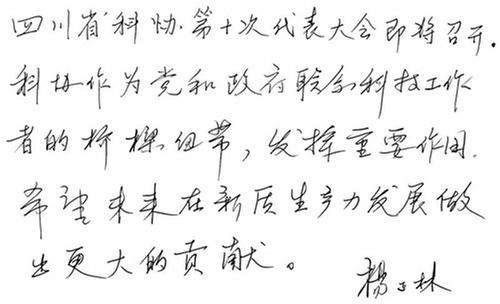 四川省科协第十次代表大会即将召开.
科协作为党和政府联系科技工作
者的桥梁纽带，发挥重要作用.
希望未来在新质生产力发展做
出更大的贡献。
杨正林